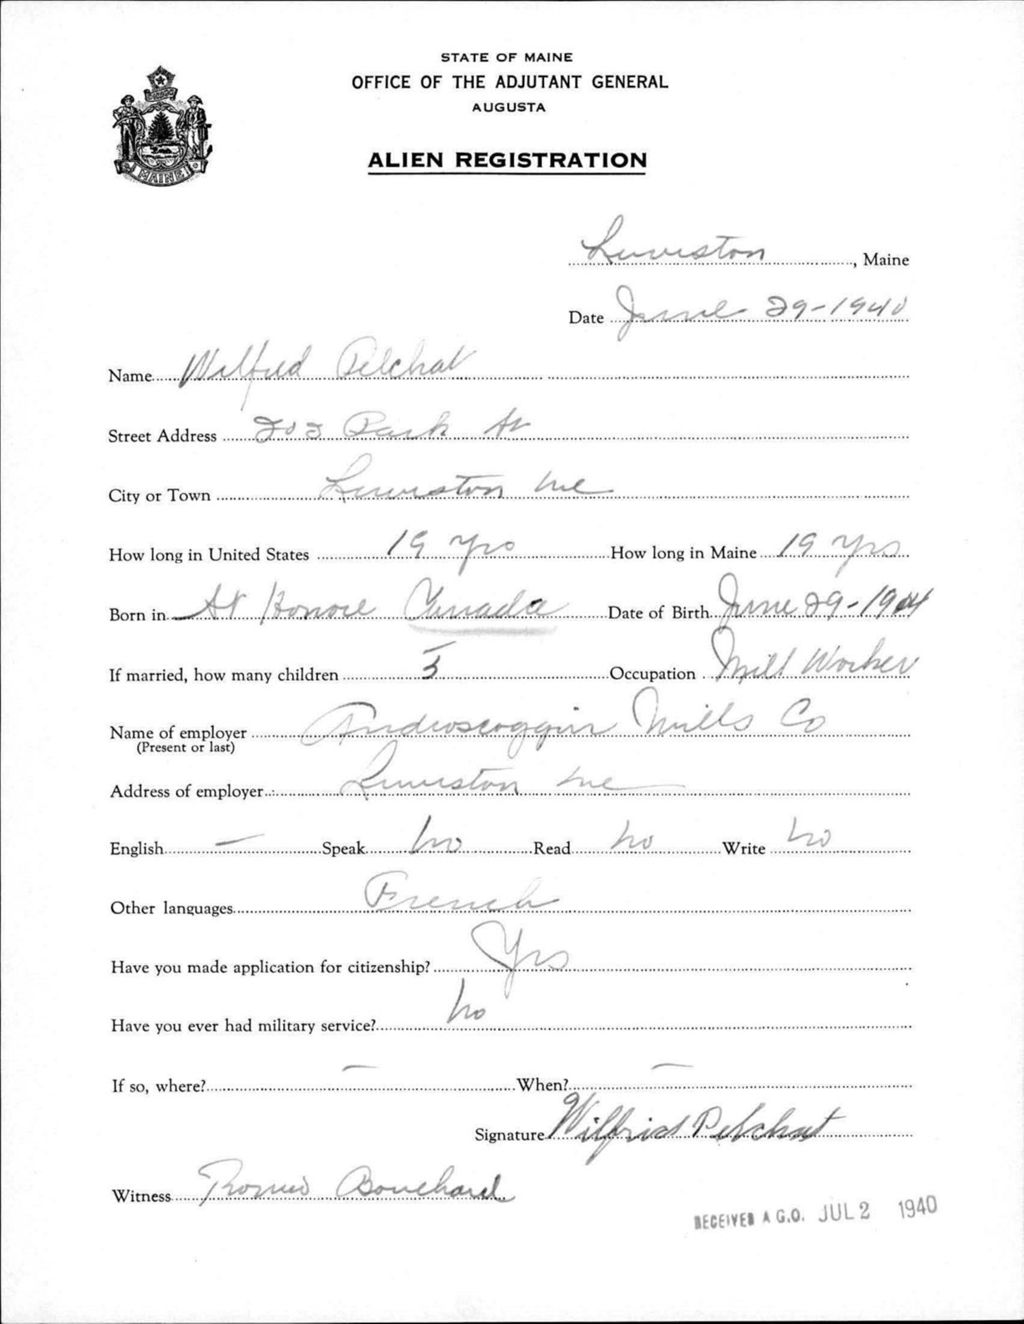 STATE OF MAINE
OFFICE OF THE ADJUTANT GENERAL
AUGUSTA
ALIEN REGISTRATION
MAINE
Lewiston, Maine
Date June 29-1940
Name Wilfred Pelchat
Street Address 203 Park St
City or Town Lewiston Me
How long in United States 19 yrs How long in Maine 19 yrs
Born in St Honore Canada Date of Birth June 29-1904
If married, how many children 3 Occupation Mill Worker
Name of employer Androscoggin Mills Co
(Present or last)
Address of employer Lewiston Me
English — Speak no Read no Write no
Other languages French
Have you made application for citizenship? Yes
Have you ever had military service? no
If so, where? — When? —
Signature Wilfrid Pelchat
Witness Romeo Bouchard
RECEIVED A.G.O. JUL 2 1940